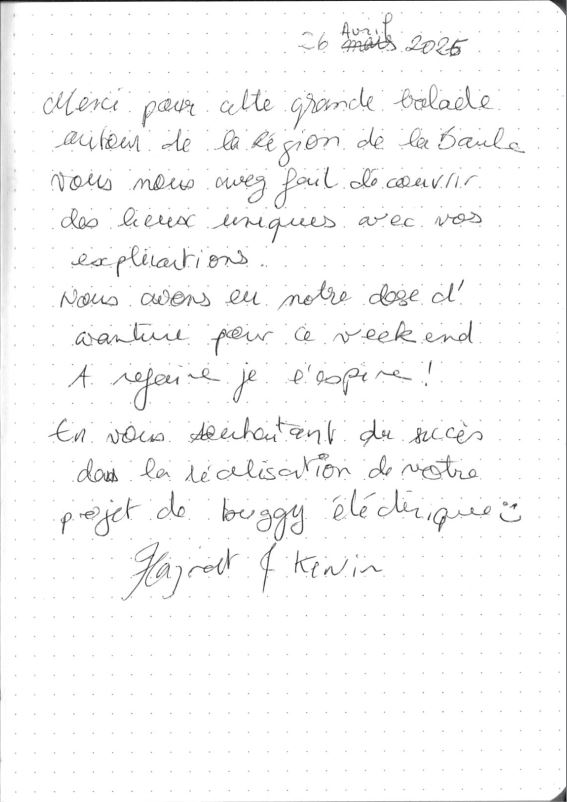 26 Avril 2025
Merci pour cette grande balade
autour de la région de la Baule
Vous nous avez fait découvrir
des lieux uniques avec vos
explications.
Nous avons eu notre dose d'
avanture pour ce weekend
A refaire je l'espère !
En vous souhaitant du succès
dans la réalisation de votre
projet de buggy éléctrique
& Kevin